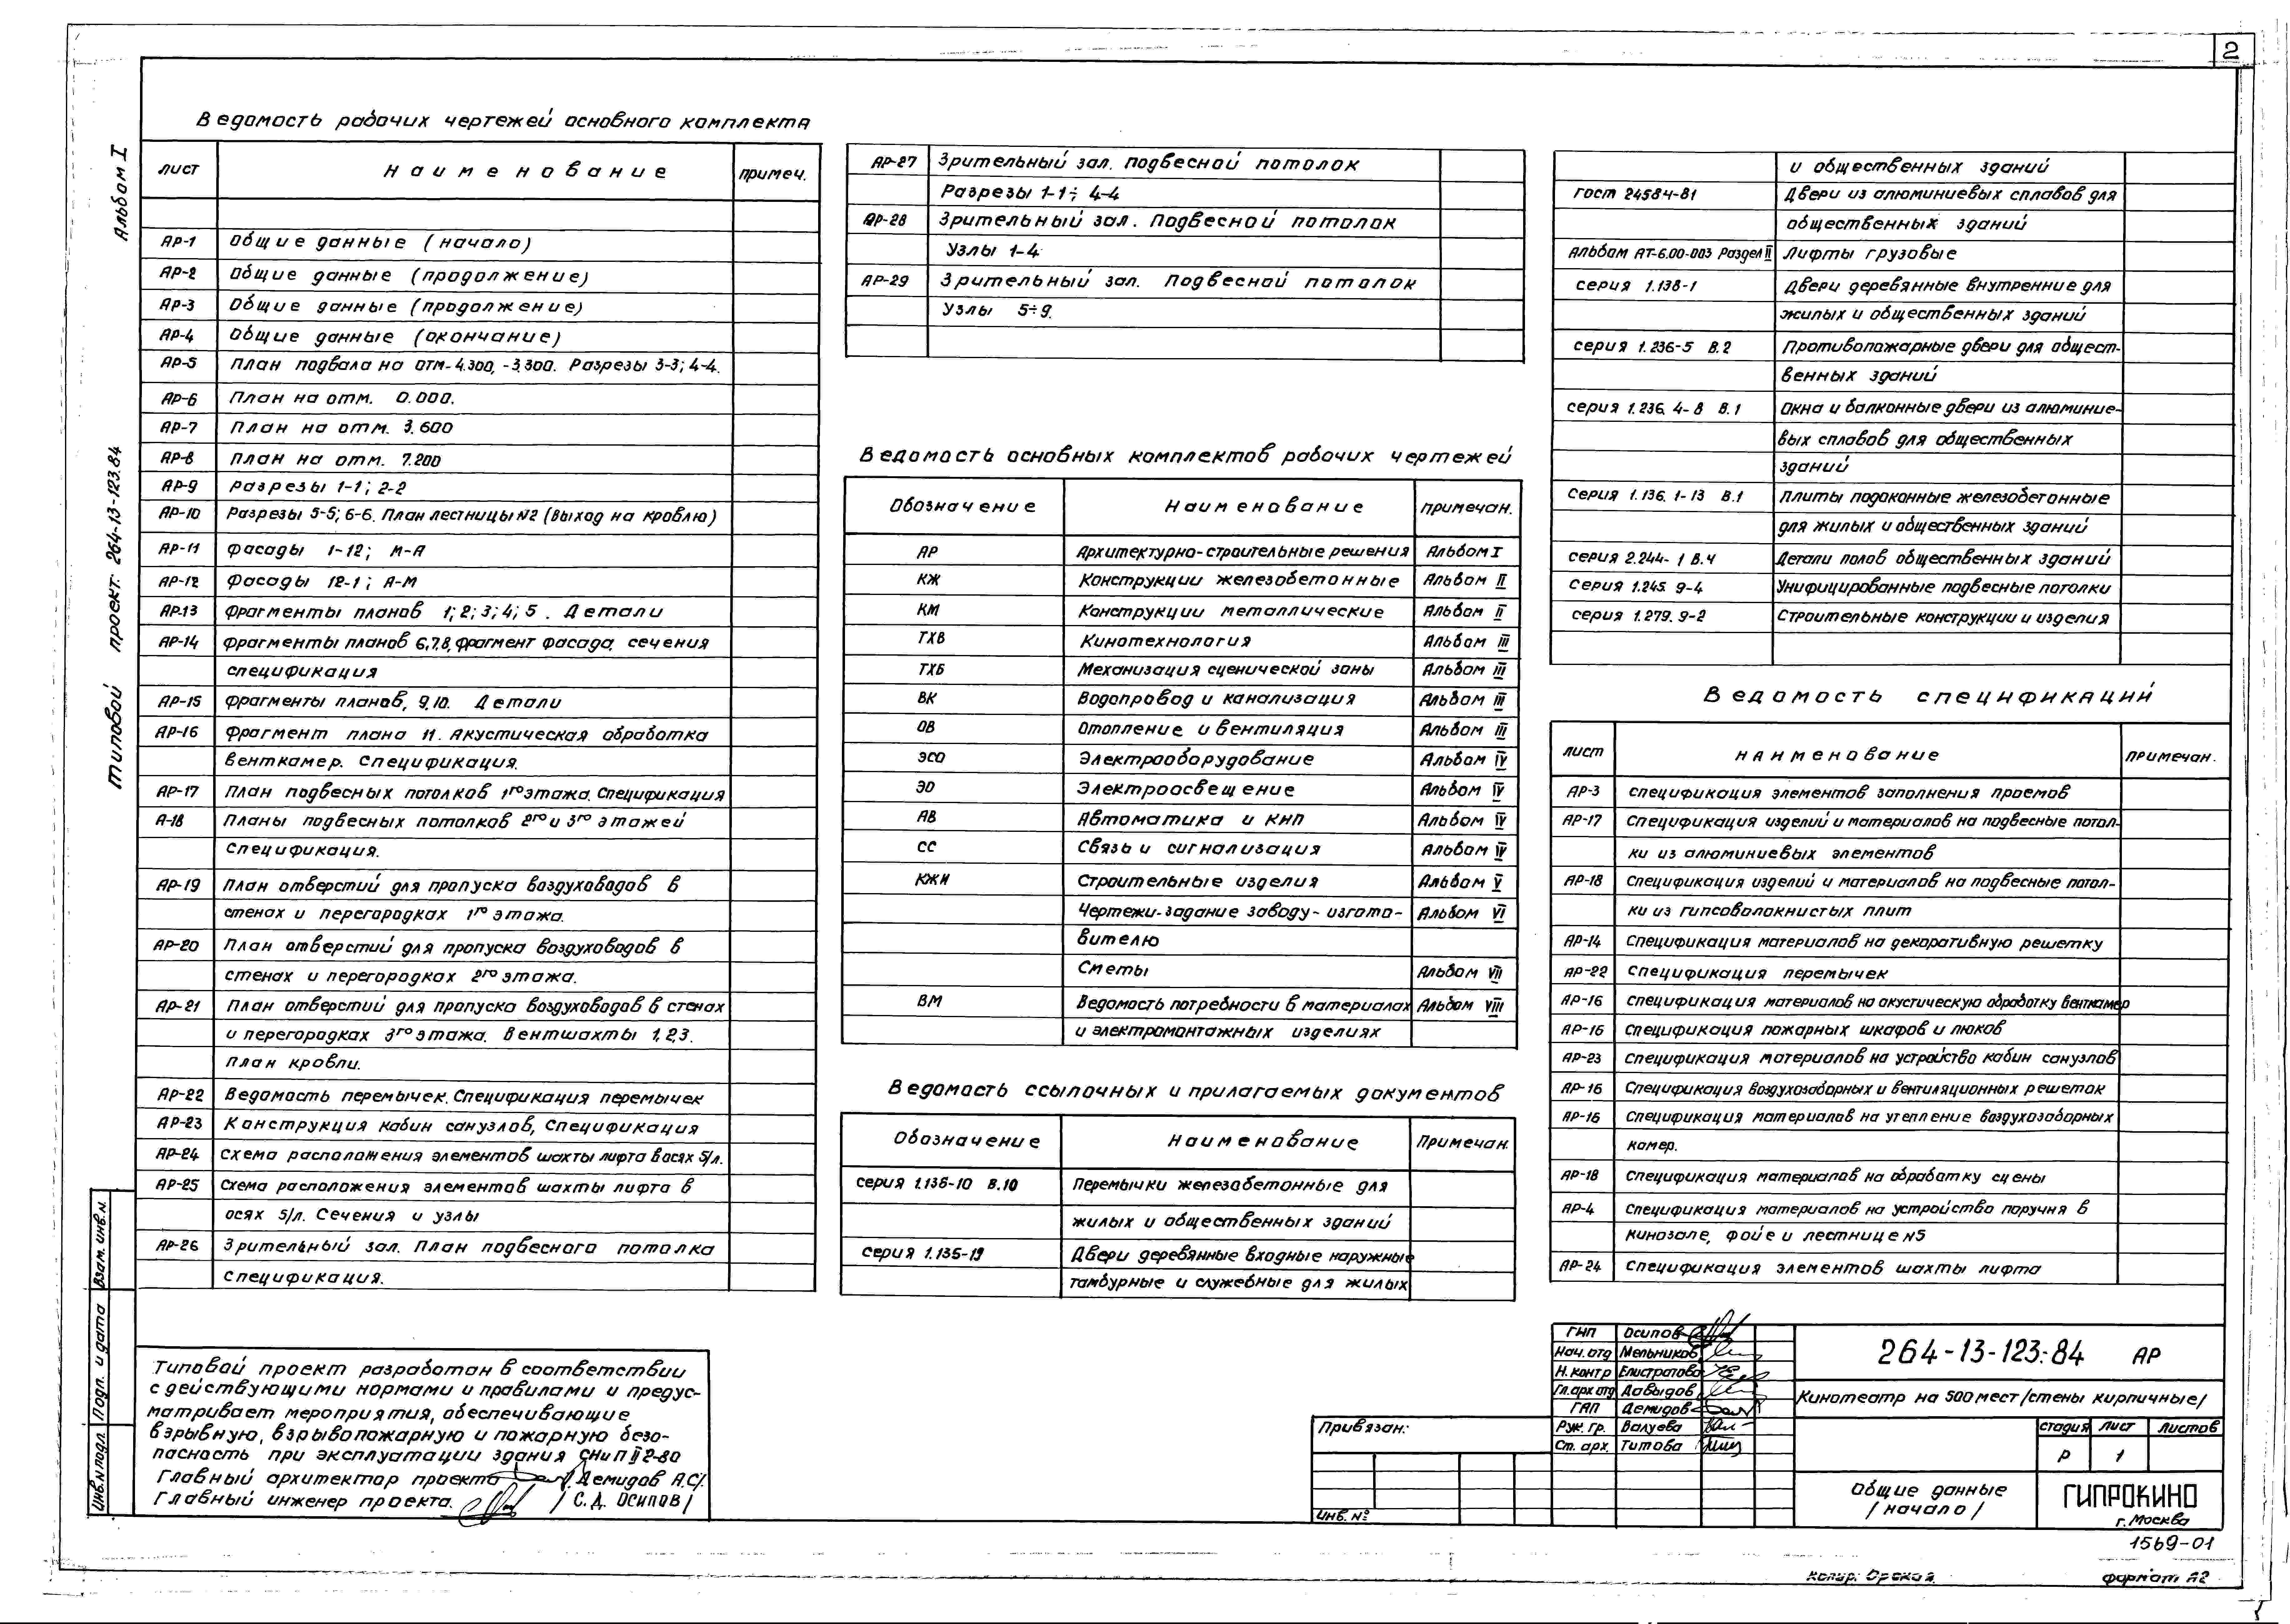 2
Альбом I
Типовой проект: 264-13-123.84
Ведомость рабочих чертежей основного комплекта
лист Наименование примеч.
АР-1 Общие данные (начало)
АР-2 Общие данные (продолжение)
АР-3 Общие данные (продолжение)
АР-4 Общие данные (окончание)
АР-5 План подвала на отм-4.300, -3.300. Разрезы 3-3; 4-4.
АР-6 План на отм. 0.000.
АР-7 План на отм. 3.600
АР-8 План на отм. 7.200
АР-9 Разрезы 1-1; 2-2
АР-10 Разрезы 5-5; 6-6. План лестницы N2 (выход на кровлю)
АР-11 Фасады 1-12; М-А
АР-12 Фасады 12-1; А-М
АР.13 Фрагменты планов 1; 2; 3; 4; 5. Детали
АР-14 Фрагменты планов 6,7,8, фрагмент фасада, сечения
спецификация
АР-15 Фрагменты планов, 9,10. Детали
АР-16 Фрагмент плана 11. Акустическая обработка
венткамер. Спецификация.
АР-17 План подвесных потолков 1го этажа. Спецификация
А-18 Планы подвесных потолков 2го и 3го этажей
Спецификация.
АР-19 План отверстий для пропуска воздуховодов в
стенах и перегородках 1го этажа.
АР-20 План отверстий для пропуска воздуховодов в
стенах и перегородках 2го этажа.
АР-21 План отверстий для пропуска воздуховодов в стенах
и перегородках 3го этажа. Вентшахты 1,2,3.
План кровли.
АР-22 Ведомость перемычек. Спецификация перемычек
АР-23 Конструкция кабин санузлов, Спецификация
АР-24 Схема расположения элементов шахты лифта в осях 5/л.
АР-25 Схема расположения элементов шахты лифта в
осях 5/л. Сечения и узлы
АР-26 Зрительный зал. План подвесного потолка
Спецификация.
АР-27 Зрительный зал. Подвесной потолок
Разрезы 1-1÷ 4-4
АР-28 Зрительный зал. Подвесной потолок
Узлы 1-4
АР-29 Зрительный зал. Подвесной потолок
Узлы 5÷9.
Ведомость основных комплектов рабочих чертежей
Обозначение Наименование примечан.
АР Архитектурно-строительные решения Альбом I
КЖ Конструкции железобетонные Альбом II
КМ Конструкции металлические Альбом II
ТХВ Кинотехнология Альбом III
ТХБ Механизация сценической зоны Альбом III
ВК Водопровод и канализация Альбом III
ОВ Отопление и вентиляция Альбом III
ЭСО Электрооборудование Альбом IV
ЭО Электроосвещение Альбом IV
АВ Автоматика и КИП Альбом IV
СС Связь и сигнализация Альбом IV
КЖИ Строительные изделия Альбом V
Чертежи-задание заводу-изгото- Альбом VI
вителю
Сметы Альбом VII
ВМ Ведомость потребности в материалах Альбом VIII
и электромонтажных изделиях
Ведомость ссылочных и прилагаемых документов
Обозначение Наименование Примечан.
серия 1.138-10 В.10 Перемычки железобетонные для
жилых и общественных зданий
серия 1.135-19 Двери деревянные входные наружные
тамбурные и служебные для жилых
и общественных зданий
гост 24584-81 Двери из алюминиевых сплавов для
общественных зданий
Альбом АТ-6.00-003 Раздел II Лифты грузовые
серия 1.138-1 Двери деревянные внутренние для
жилых и общественных зданий
серия 1.236-5 В.2 Противопожарные двери для общест-
венных зданий
серия 1.236. 4-8 В.1 Окна и балконные двери из алюминие-
вых сплавов для общественных
зданий
Серия 1.136. 1-13 В.1 Плиты подоконные железобетонные
для жилых и общественных зданий
серия 2.244-1 В.4 Детали полов общественных зданий
Серия 1.245. 9-4 Унифицированные подвесные потолки
серия 1.279. 9-2 Строительные конструкции и изделия
Ведомость спецификаций
лист наименование примечан.
АР-3 спецификация элементов заполнения проемов
АР-17 Спецификация изделий и материалов на подвесные потол-
ки из алюминиевых элементов
АР-18 Спецификация изделий и материалов на подвесные потол-
ки из гипсоволокнистых плит
АР-14 Спецификация материалов на декоративную решетку
АР-22 Спецификация перемычек
АР-16 Спецификация материалов на акустическую обработку венткамер
АР-16 Спецификация пожарных шкафов и люков
АР-23 Спецификация материалов на устройство кабин санузлов
АР-16 Спецификация воздухозаборных и вентиляционных решеток
АР-16 Спецификация материалов на утепление воздухозаборных
камер.
АР-18 Спецификация материалов на обработку сцены
АР-4 Спецификация материалов на устройство поручня в
кинозале, фойе и лестнице N5
АР-24 Спецификация элементов шахты лифта
Типовой проект разработан в соответствии
с действующими нормами и правилами и предус-
матривает мероприятия, обеспечивающие
взрывную, взрывопожарную и пожарную безо-
пасность при эксплуатации здания СНиП II 2-80
Главный архитектор проекта /Демидов А.С/.
Главный инженер проекта. /С.Д. Осипов/
Взам. инв.N.
Подп. и дата
Инв.N подл.
Привязан:
Инв. №
ГИП Осипов
Нач. отд Мельников
Н. контр Елистратова
Гл. арх отд Давыдов
ГАП Демидов
Рук. гр. Валуева
Ст. арх. Титова
264-13-123.84 АР
Кинотеатр на 500 мест /стены кирпичные/
стадия лист листов
Р 1
Общие данные
/начало/
ГИПРОКИНО
г. Москва
1569-01
Копир: Орская
формат А2